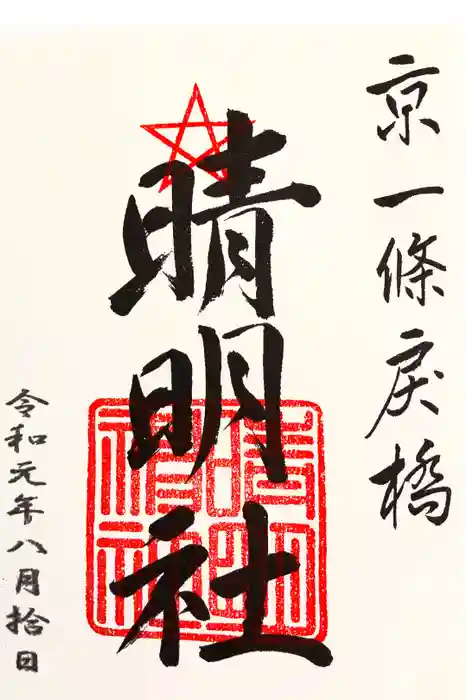 京一條戻橋
晴明社
晴明神社
令和元年八月拾日